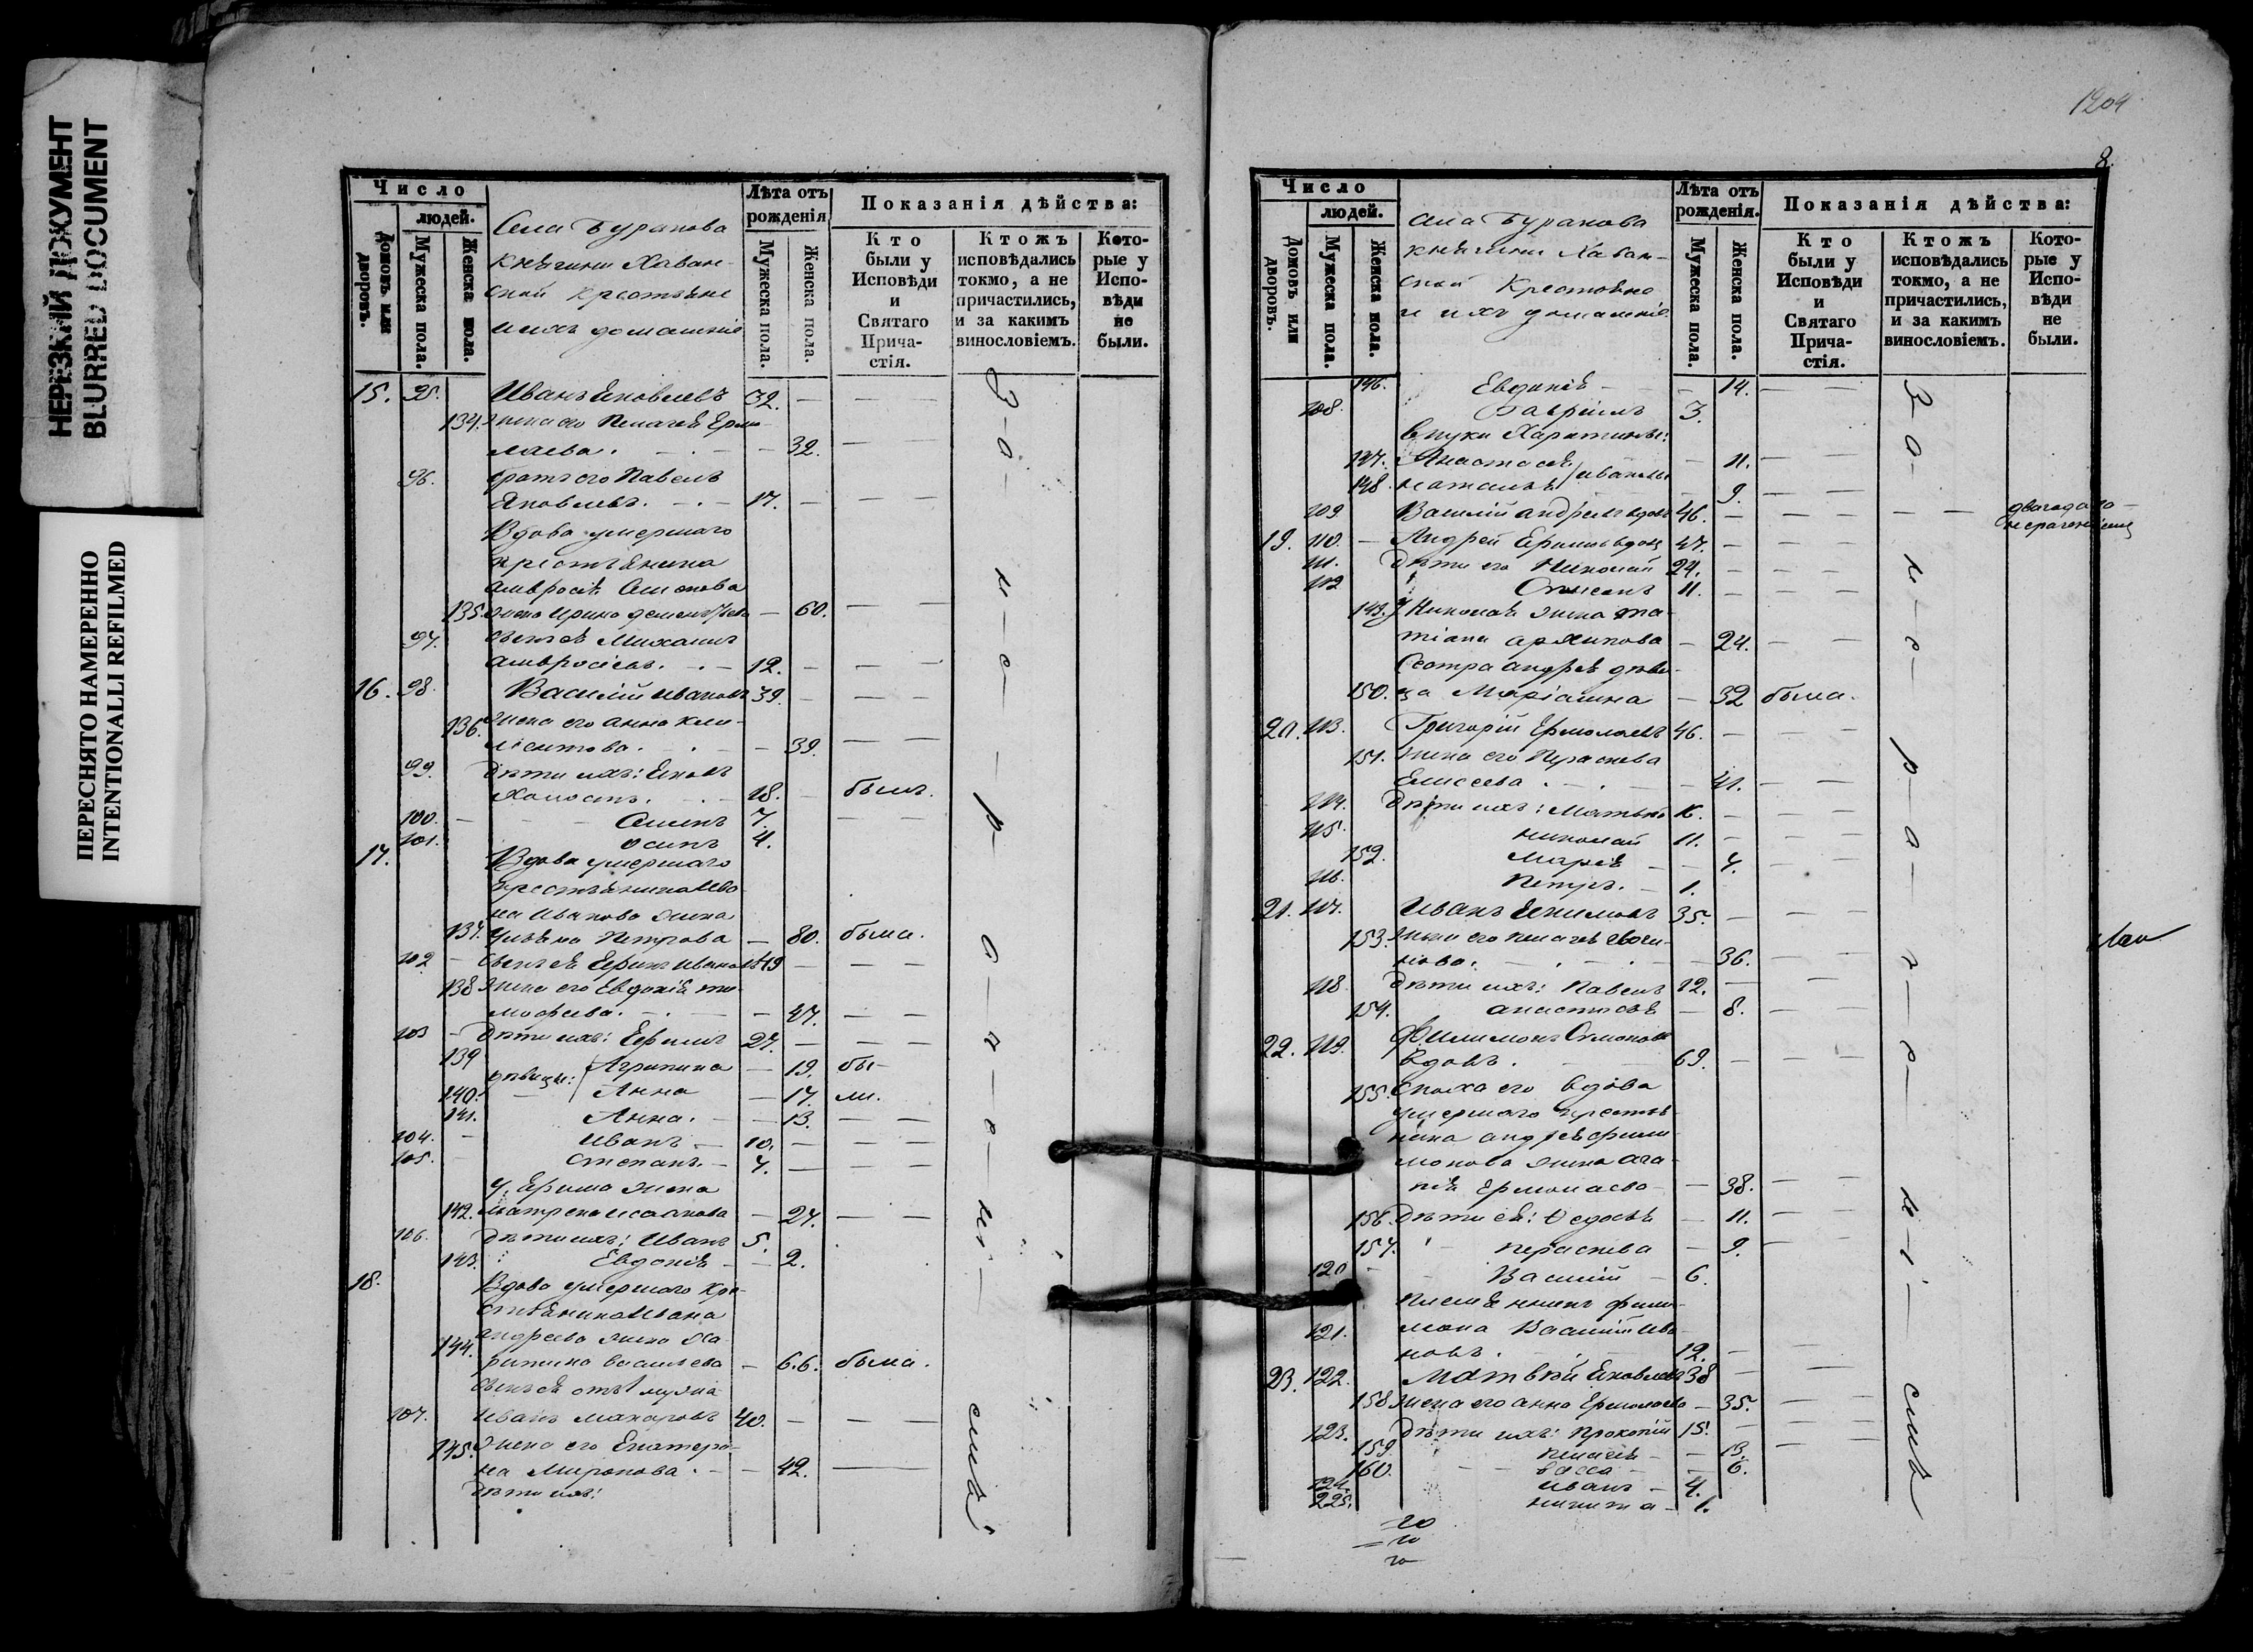 НЕРЕЗКИЙ ДОКУМЕНТ
BLURRED DOCUMENT
ПЕРЕСНЯТО НАМЕРЕННО
INTENTIONALLI REFILMED
Число
людей.
Домовъ или дворовъ.
Мужеска пола.
Женска пола.
Села Буракова
княгини Хован-
ской крестьяне
и ихъ домашніе
Лѣта отъ рожденія
Мужеска пола.
Женска пола.
Показанія дѣйства:
Кто были у Исповѣди и Святаго Прича-стія.
Ктожъ исповѣдались токмо, а не причастились, и за какимъ винословіемъ.
Кото-рые у Испо-вѣди не были.
15. 95. Иванъ Яковлевъ 32. —
134. жена его Пелагея Ермо-
лаева. — 32.
96. братъ его Павелъ
Яковлевъ. — 17. —
Вдова умершаго
крестьянина
Амвросія Симонова
135. жена Ирина Дементьева — 60.
97. сынъ ея Михаилъ
Амвросіевъ. — 12. —
16. 98. Василій Ивановъ 39. —
136. жена его Анна Кли-
ментова. — 39.
99. дѣти ихъ: Яковъ
холостъ. — 18. — былъ.
100. — Семенъ 7.
101. Осипъ 4.
17. Вдова умершаго
крестьянина Ива-
на Иванова жена
137. Ульяна Петрова — 80. была.
102 — сынъ ея Ефимъ Ивановъ 49 —
138 жена его Евдокія Ти-
мофеева. — 47.
103 — дѣти ихъ: Ефимъ 27. —
139 дѣвицы: Агрипина — 19. бы-
140. — Анна — 17. ли.
141. Анна. — 13.
104. — Иванъ — 10. —
105. Степанъ. — 7. —
У Ефима жена
142. Матрена Исаакова — 27.
106. дѣти ихъ: Иванъ 5.
143. Евдокія — 2.
18. Вдова умершаго кре-
стьянина Ивана
Андреева жена Ха-
144. ритина Васильева — 66. была.
сынъ ея отъ 1 мужа
107. Иванъ Макаровъ 40. —
145. жена его Екатери-
на Миронова. — 42.
дѣти ихъ:
1204
8.
Число
людей.
Домовъ или дворовъ.
Мужеска пола.
Женска пола.
Села Буракова
княгини Хован-
ской крестьяне
и ихъ домашніе
Лѣта отъ рожденія.
Мужеска пола.
Женска пола.
Показанія дѣйства:
Кто были у Исповѣди и Святаго Прича-стія.
Ктожъ исповѣдались токмо, а не причастились, и за какимъ винословіемъ.
Кото-рые у Испо-вѣди не были.
146. Евдокія — — 14.
108. Гавріилъ 3.
внуки Харитины:
147. Анастасія Ивановы — 11.
148. Наталья — 9.
109 Василій Андреевъ вдовъ 46. —
19. 110. — Андрей Ефимовъ вдовъ 47. —
111. дѣти его Николай 24. —
112 Степанъ 11. —
149. У Николая жена Та-
тіана Архипова — 24.
Сестра Андрея дѣви-
150. ца Маріамна — 32 была.
20. 113. Григорій Ермолаевъ 46. —
151. жена его Параскева
Елисеева. — 41. —
114. дѣти ихъ: Матвей 16. —
115. Николай 11. —
152. Марія — — 7.
116. Петръ. — 1.
21. 117. Иванъ Екимовъ 35. —
153. жена его Пелагея
нова. — 36.
118. дѣти ихъ: Павелъ 12. —
154. Анастасія — 8.
22. 119. Филимонъ Симоновъ
вдовъ. 69. —
155. сноха его вдова
умершаго крестья-
нина Андрея Фили-
монова жена Ага-
пія Ермолаева — 38.
156. дѣти ея: Ѳедосья — 11.
157. Параскева — 9.
120 — Василій — 6.
племянникъ Фили-
121. мона Василій Ива-
новъ. 12. —
23. 122. Матвѣй Яковлевъ 38 —
158 жена его Анна Ермолаева — 35.
123. дѣти ихъ: Прокопій 15. —
159. Пелагея — — 13.
160. Васса — — 6.
124. Иванъ — 4.
225. Никита — 1.